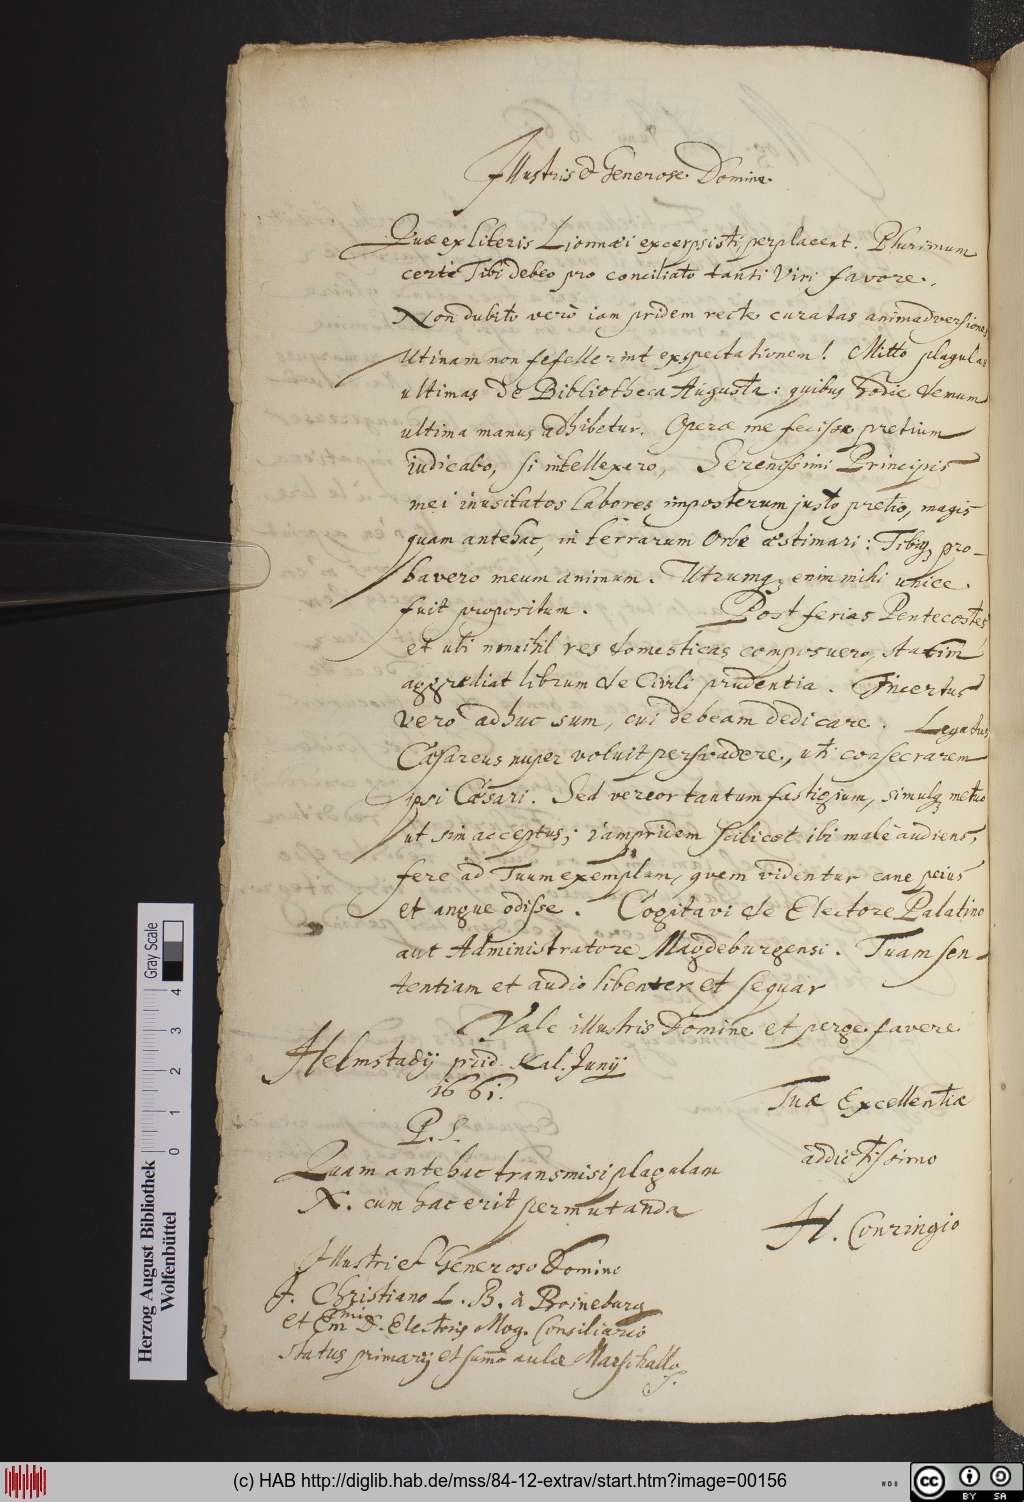 Illustris & Generose Domine
Quae ex literis Lionnaei excerpsisti, perplacent. Plurimum
certe Tibi debeo pro conciliato tanti Viri favore.
Non dubito verò iam pridem recte curatas animadversiones
Utinam non fefellerint exspectationem! Mitto plagulas
ultimas de Bibliotheca Augusta: quibus hodie demum
ultima manus adhibetur. Operae me fecisse pretium
iudicabo, si intellexero, Serenissimi Principis
mei inusitatos labores imposterum justo pretio, magis
quam antehac, in terrarum Orbe aestimari: Tibiq; pro-
bavero meum animum. Utrumq; enim mihi unice
fuit propositum. Post ferias Pentecostes,
et ubi nonnihil res domesticas composuero, statim
aggrediar librum de Civili prudentia. Incertus
vero adhuc sum, cui debeam dedicare. Legatus
Caesareus nuper voluit persvadere, uti consecrarem
ipsi Caesari. Sed vereor tantum fastigium, simulq; metuo
ut sim acceptus; iampridem scilicet ibi malè audiens,
fere ad Tuum exemplum, quem videntur cane peius
et angue odisse. Cogitavi de Electore Palatino
aut Administratore Magdeburgensi. Tuam sen-
tentiam et audio libenter et sequar
Vale illustris Domine et perge favere
Helmstadij prid. Kal. Junij
1661.
Tuae Excellentiae
addictissimo
H. Conringio
P. S.
Quam antehac transmisi plagulam
X. cum hac erit permutanda
Illustri et Generoso Domino
J. Christiano L. B. à Boineburg
et Emmi D. Electoris Mog. Consiliario
status primarij et summo aulae Marschallo
Herzog August Bibliothek
Wolfenbüttel
0 1 2 3 4
Gray Scale
(c) HAB http://diglib.hab.de/mss/84-12-extrav/start.htm?image=00156
cc BY SA